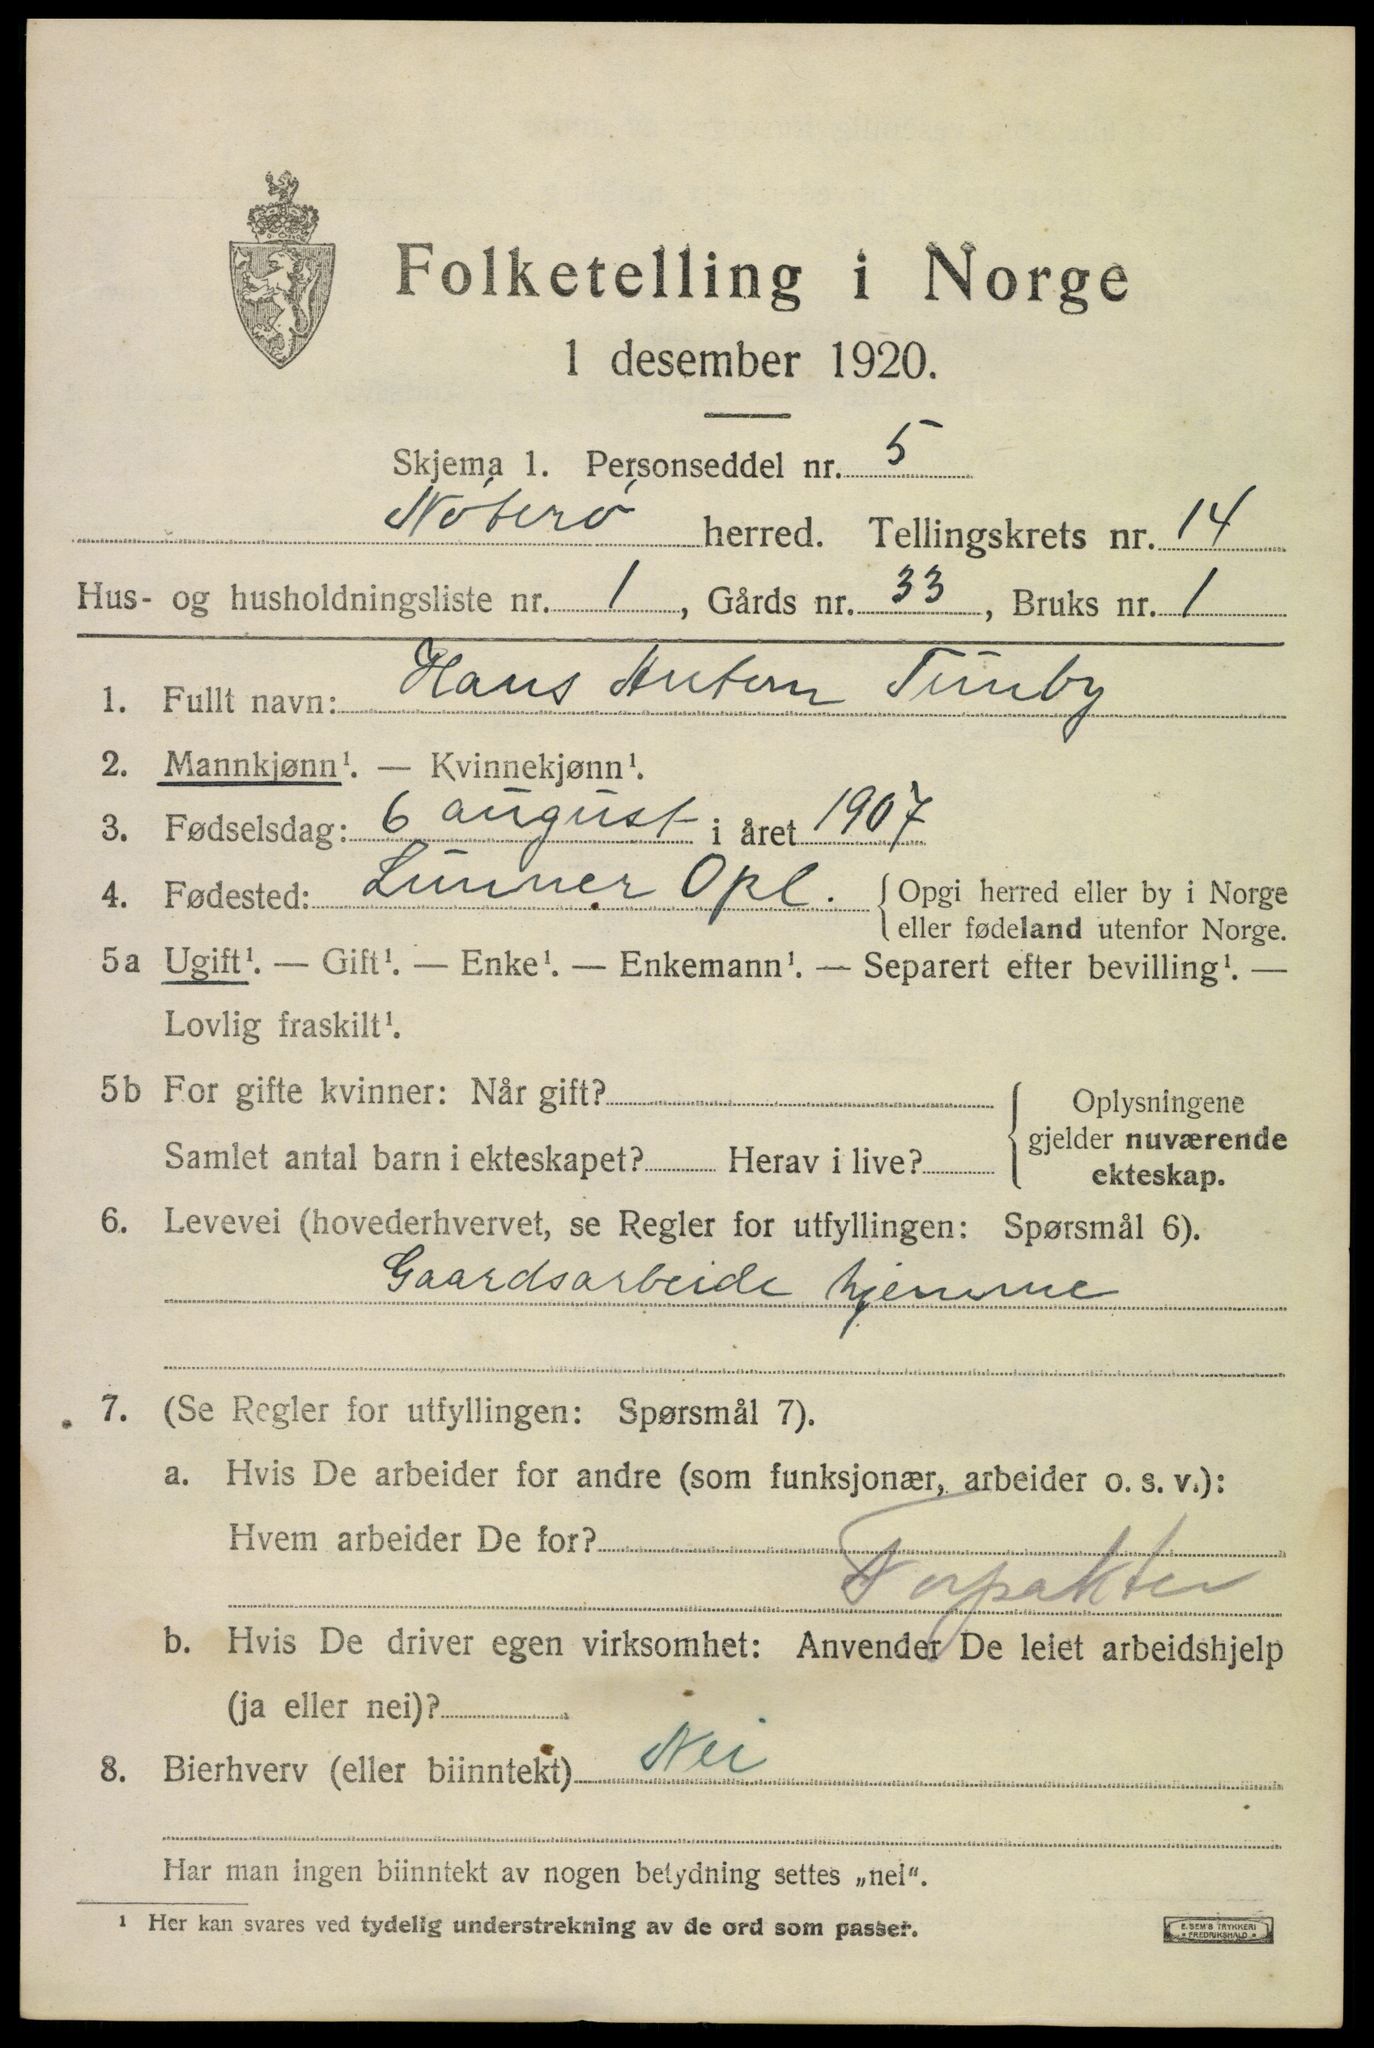 Folketelling i Norge
1 desember 1920.
Skjema 1. Personseddel nr. 5
Nóteró herred. Tellingskrets nr. 14
Hus- og husholdningsliste nr. 1, Gårds nr. 33, Bruks nr. 1
1. Fullt navn: Hans Antom Tunby
2. Mannkjønn¹. — Kvinnekjønn¹.
3. Fødselsdag: 6 august i året 1907
4. Fødested: Lunner Opl. { Opgi herred eller by i Norge
eller fødeland utenfor Norge.
5a Ugift¹. — Gift¹. — Enke¹. — Enkemann¹. — Separert efter bevilling¹. —
Lovlig fraskilt¹.
5b For gifte kvinner: Når gift?
Samlet antal barn i ekteskapet? Herav i live?
Oplysningene
gjelder nuværende
ekteskap.
6. Levevei (hovederhvervet, se Regler for utfyllingen: Spørsmål 6).
Gaardsarbeide hjemme
7. (Se Regler for utfyllingen: Spørsmål 7).
a. Hvis De arbeider for andre (som funksjonær, arbeider o. s. v.):
Hvem arbeider De for?
Forpakter
b. Hvis De driver egen virksomhet: Anvender De leiet arbeidshjelp
(ja eller nei)?
8. Bierhverv (eller biinntekt) Nei
Har man ingen biinntekt av nogen betydning settes „nei“.
¹ Her kan svares ved tydelig understrekning av de ord som passer.
E. SEM'S TRYKKERI
FREDRIKSHALD